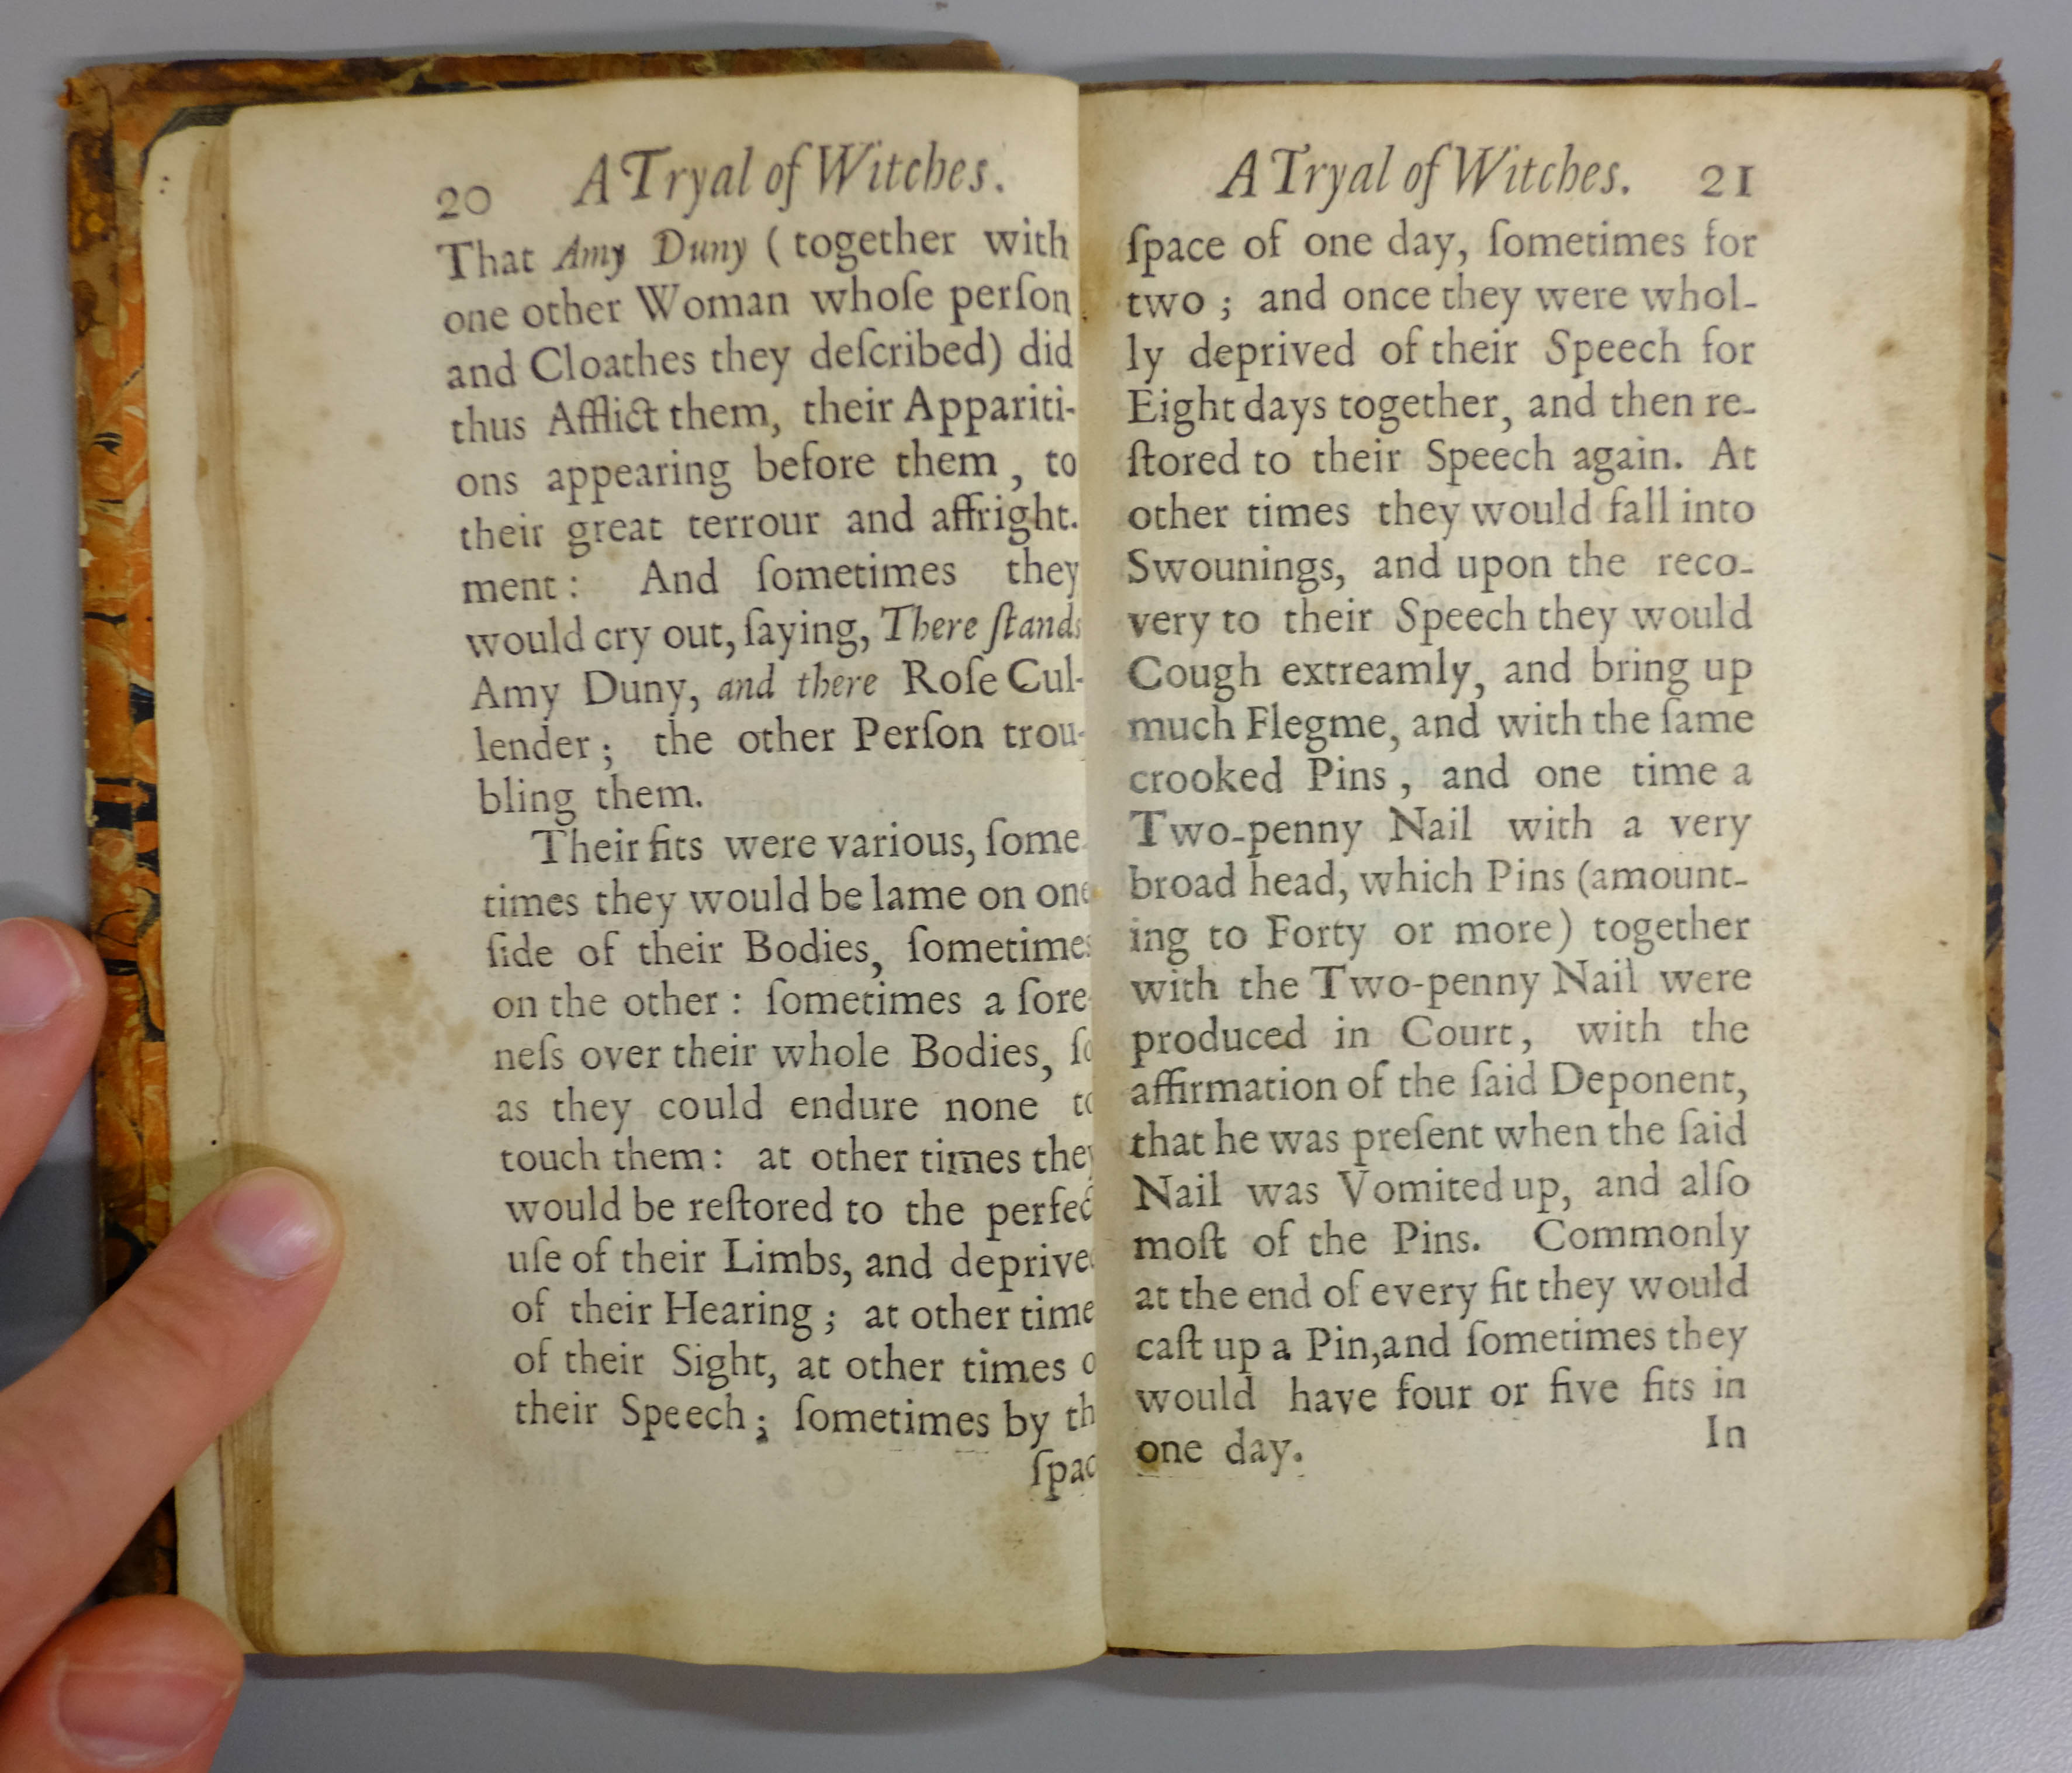 20 A Tryal of Witches.
That Amy Duny ( together with
one other Woman whoſe perſon
and Cloathes they deſcribed) did
thus Afflict them, their Appariti-
ons appearing before them , to
their great terrour and affright.
ment : And ſometimes they
would cry out, ſaying, There ſtands
Amy Duny, and there Roſe Cul-
lender ; the other Perſon trou-
bling them.
Their fits were various, ſome-
times they would be lame on one
ſide of their Bodies, ſometimes
on the other : ſometimes a ſore-
neſs over their whole Bodies, ſo
as they could endure none to
touch them : at other times they
would be reſtored to the perfec
uſe of their Limbs, and deprive
of their Hearing ; at other time
of their Sight, at other times o
their Speech ; ſometimes by th
ſpac
A Tryal of Witches. 21
ſpace of one day, ſometimes for
two ; and once they were whol-
ly deprived of their Speech for
Eight days together, and then re-
ſtored to their Speech again. At
other times they would fall into
Swounings, and upon the reco-
very to their Speech they would
Cough extreamly, and bring up
much Flegme, and with the ſame
crooked Pins , and one time a
Two-penny Nail with a very
broad head, which Pins (amount-
ing to Forty or more) together
with the Two-penny Nail were
produced in Court, with the
affirmation of the ſaid Deponent,
that he was preſent when the ſaid
Nail was Vomited up, and alſo
moſt of the Pins. Commonly
at the end of every fit they would
caſt up a Pin,and ſometimes they
would have four or five fits in
one day.
In